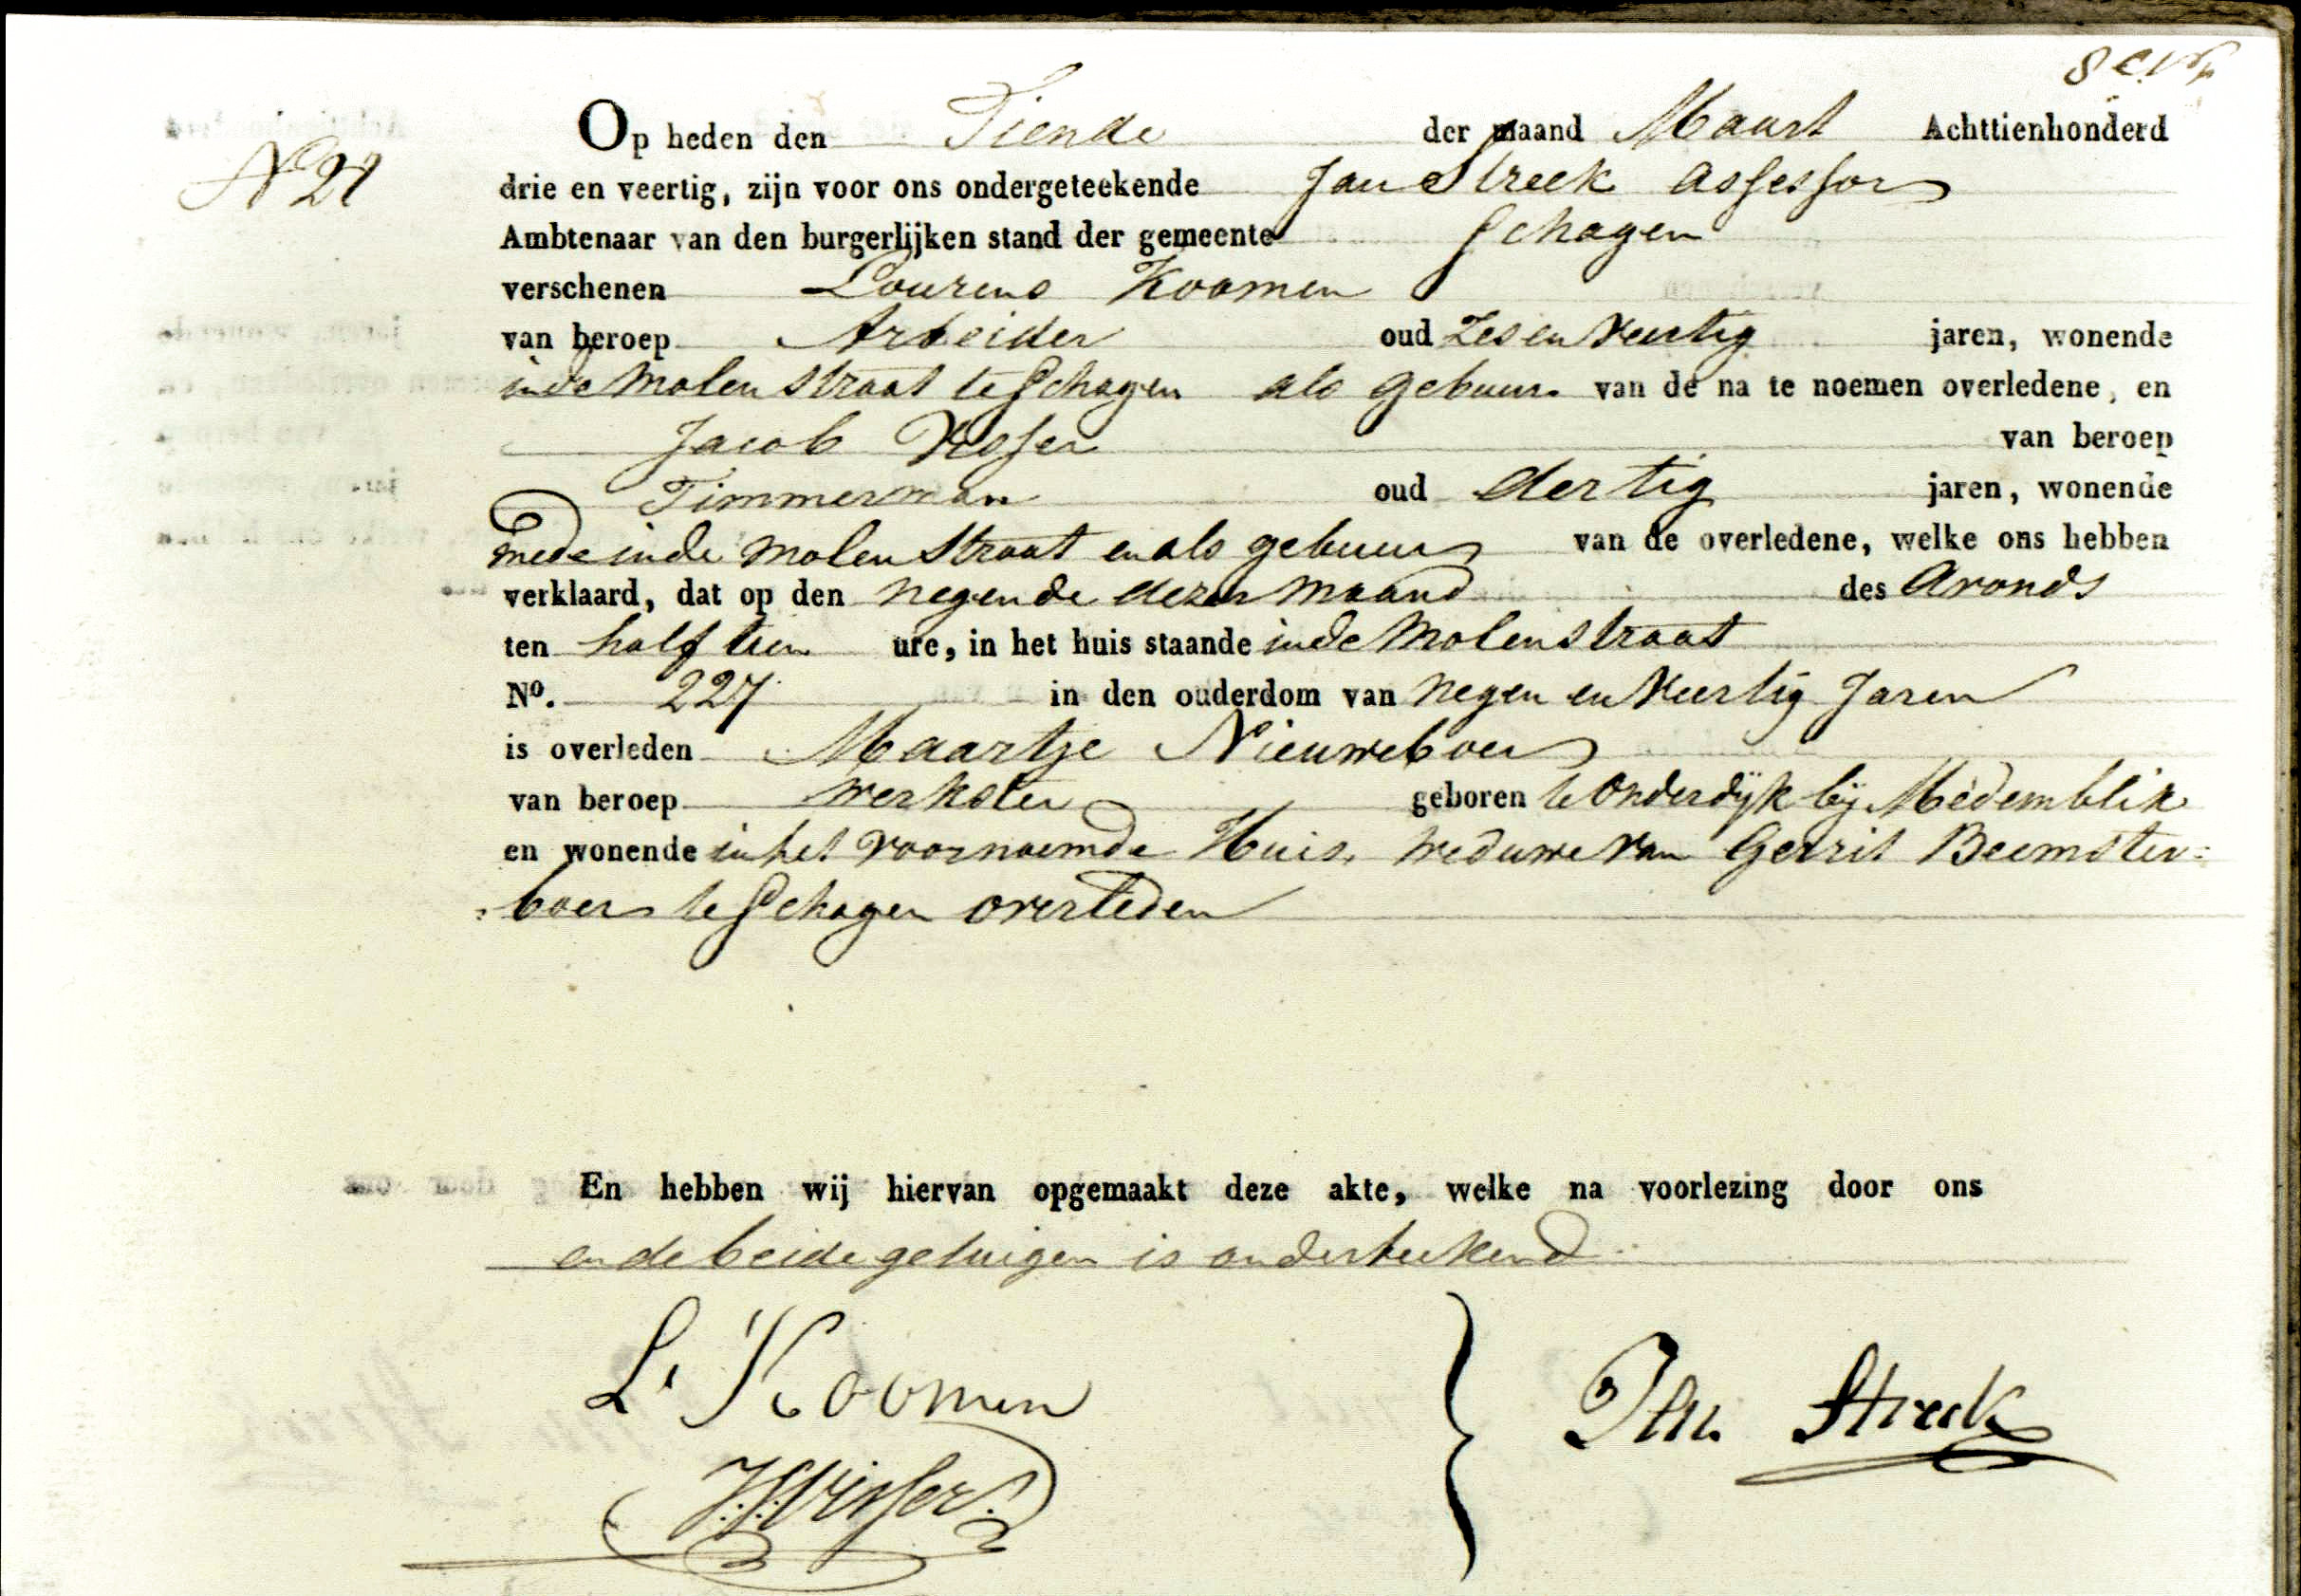 Op heden den Tiende der maand Maart Achttienhonderd
drie en veertig, zijn voor ons ondergeteekende Jan Streek Assessor
Ambtenaar van den burgerlijken stand der gemeente Schagen
verschenen Lourens Koomen
van beroep Arbeider oud Zes en Veertig jaren, wonende
in de Molen Straat te Schagen als gebuur van de na te noemen overledene, en
Jacob Visser van beroep
Timmerman oud dertig jaren, wonende
mede in de Molen Straat en als gebuur van de overledene, welke ons hebben
verklaard, dat op den negende dezer maand des Avonds
ten half tien ure, in het huis staande in de Molenstraat
No. 227 in den ouderdom van Negen en Veertig Jaren
is overleden Maartje Nieuweboer
van beroep werkster geboren te Onderdijk bij Medemblik
en wonende in het voornoemde Huis, weduwe van Gerrit Beemster=
=boer te Schagen overleden
En hebben wij hiervan opgemaakt deze akte, welke na voorlezing door ons
en de beide getuigen is onderteekend
L. Koomen
Jan Streek
J. Visser